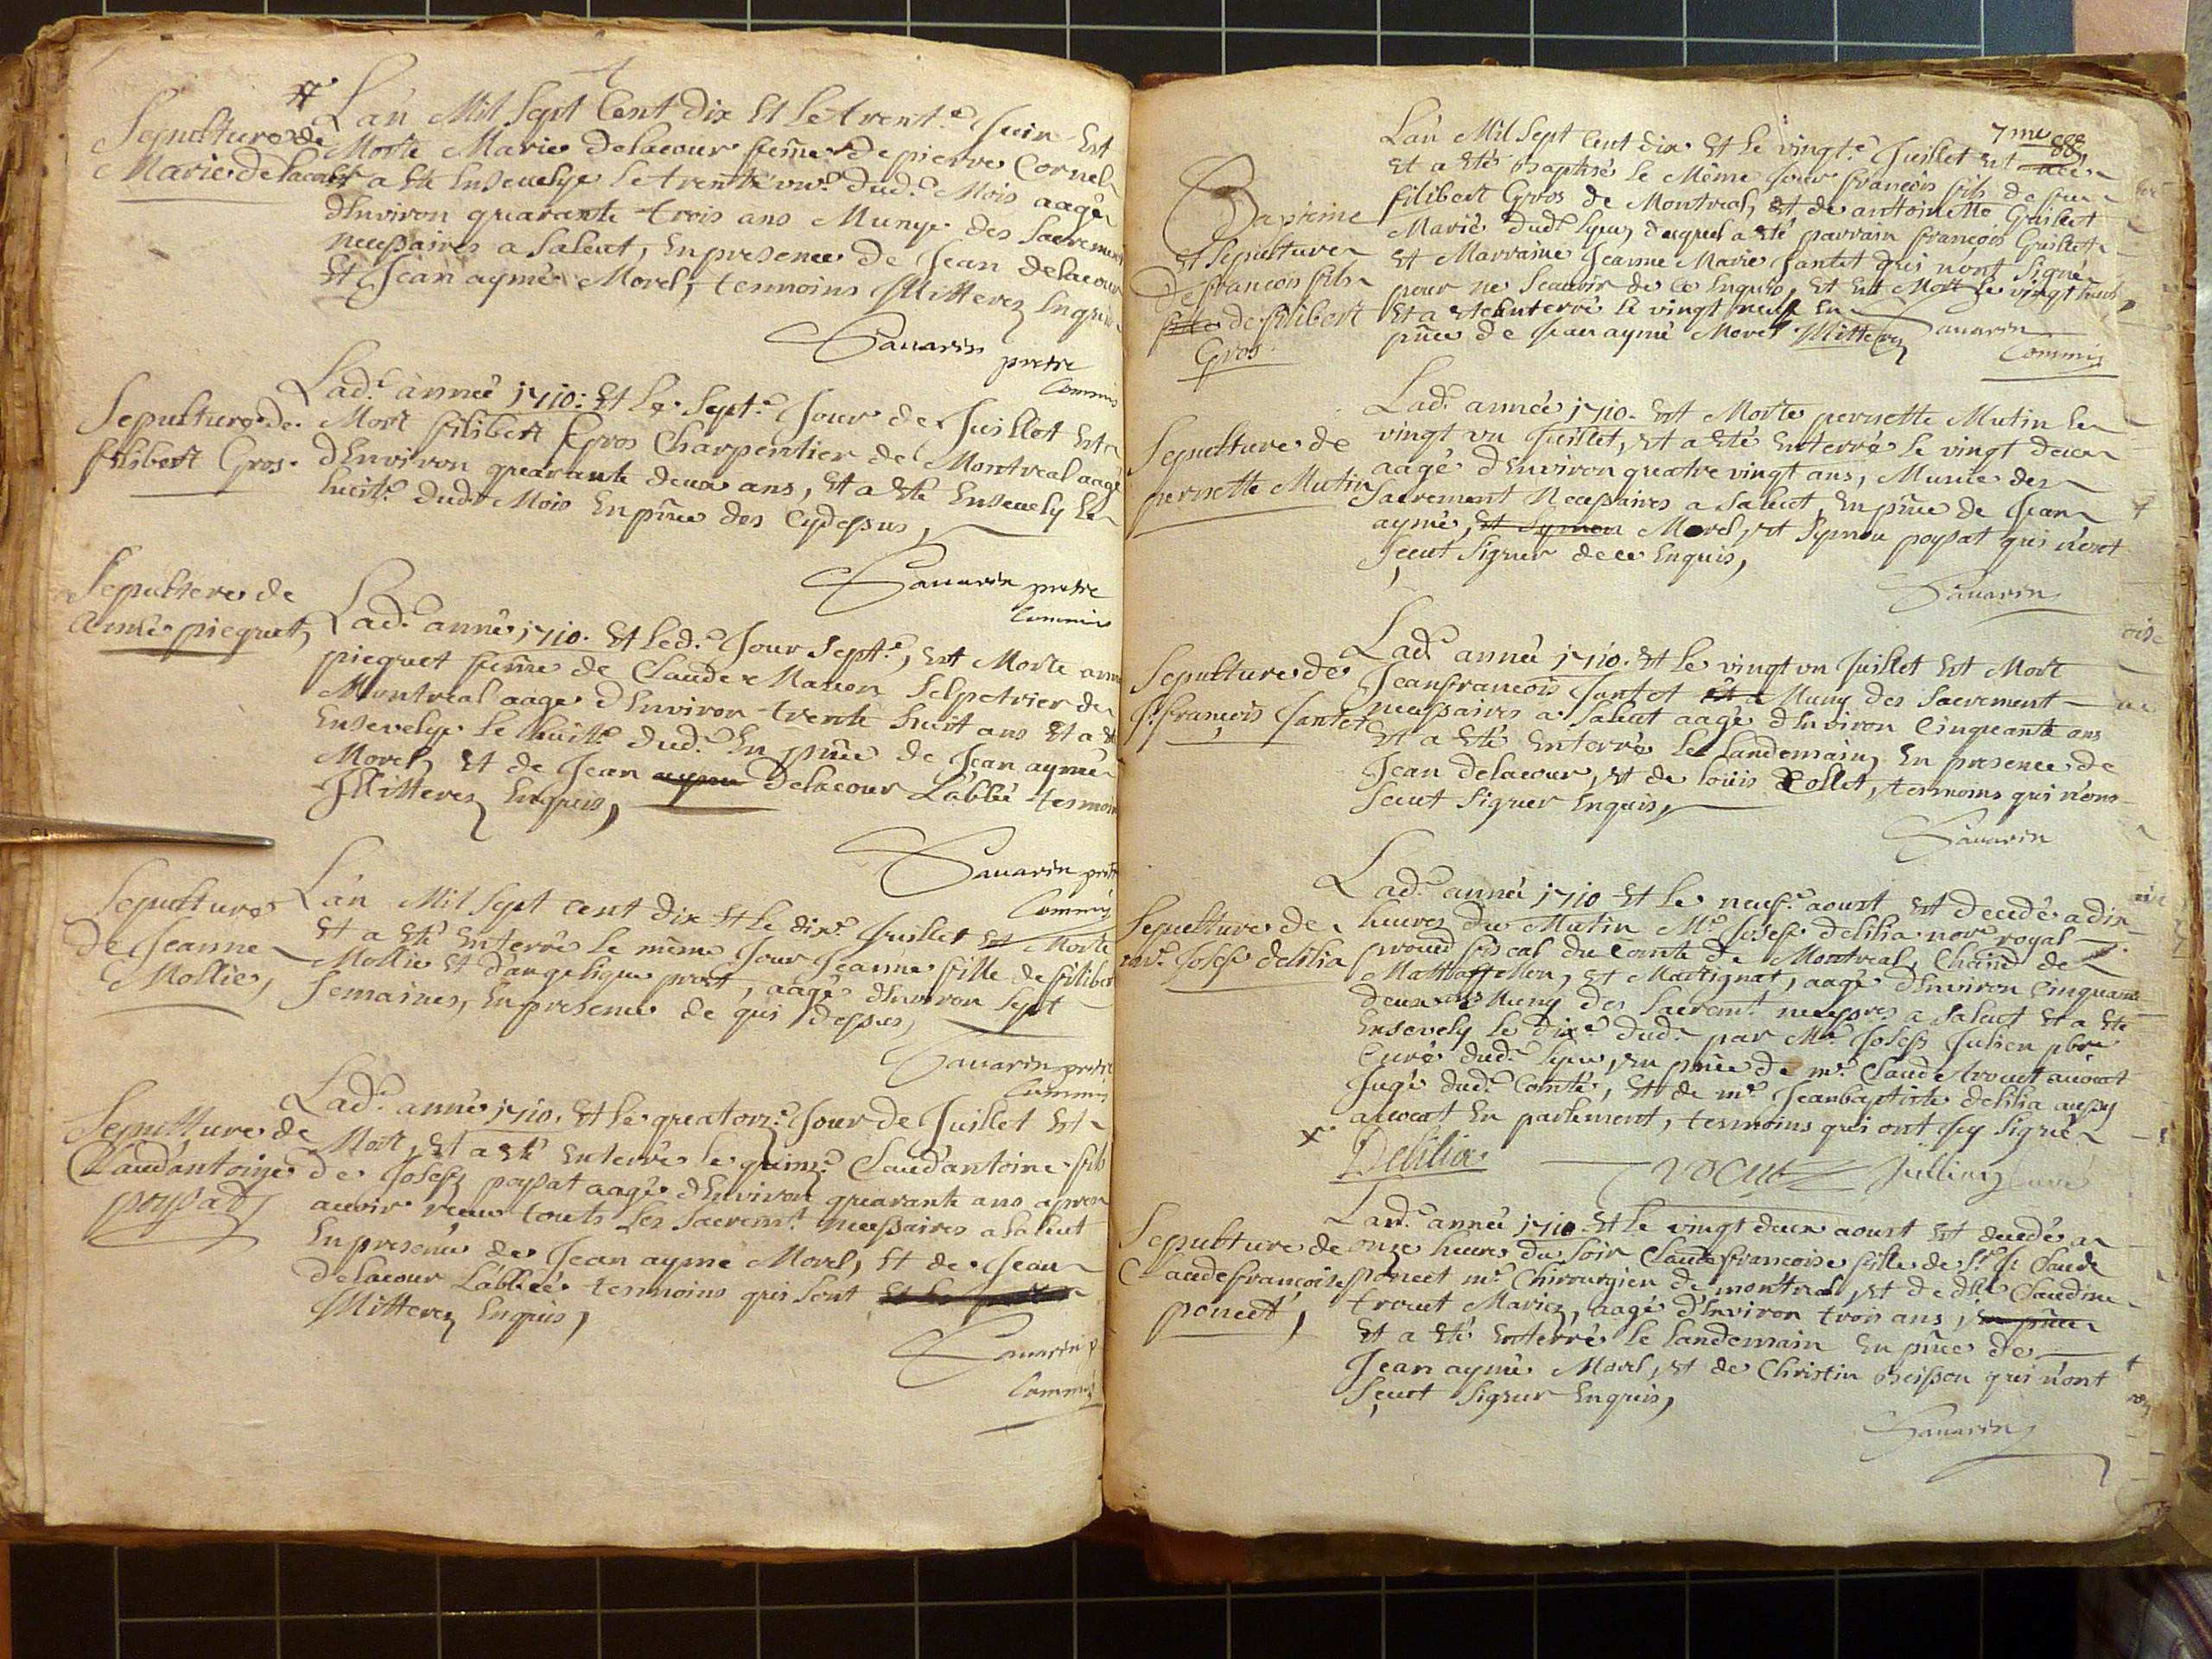 Sepulture de
Marie Delacour
L'an Mil Sept Cent Dix Et Le trent.e Juin Est
Morte Marie Delacour feme de pierre Cornel
Et a Eté Ensevelye Le trente un.e dud. Mois aagé
d'Environ quarante trois ans Munye des Sacrement
necessaires a Salut, En presence de Jean Delacour
Et Jean aymé Morel, tesmoins Illitterez Enquis
Savarin pretre
Commis
Sepulture de
filibert Gros
Lad.e année 1710. Et Le Sept.e Jour de Juillet Est
Mort filibert Gros Charpentier de Montreal aagé
d'Environ quarante deux ans, Et a Eté Ensevely Le
huit.e dud.t Mois En pñce des Cydessus,
Savarin pretre
Commis
Sepulture de
Anne picquet,
Lad.e année 1710. Et Led.e Jour Sept.e, Est Morte anne
picquet feme de Claude Manon Selpetrier de
Montreal aagé d'Environ trente huit ans Et a Eté
Ensevelye Le huit.e dud. En pñce de Jean aymé
Morel, Et de Jean Delacour L'abbé tesmoins
Illitterez Enquis,
Savarin pretre
Commis
Sepulture
de Jeanne
Mollie,
L'an Mil Sept cent dix Et Le dix.e Juillet Est Morte
Et a Eté Enterré Le même Jour Jeanne fille de filibert
Mollie Et d'angelique prost, aagé d'Environ Sept
Semaines, En presence de qui dessus,
Savarin pretre
Commis
Sepulture de
Claud'antoine
poysat,
Lad.e année 1710. Et Le quatorz.e Jour de Juillet Est
Mort, Et a Eté Enterré Le quinz.e Claud'antoine fils
de Joseph poysat aagé d'Environ quarante ans apres
auoir receu touts Les Sacrem.t necessaires a Salut
En presence de Jean aymé Morel, Et de Jean
Delacour L'abbée tesmoins qui Sont
Illitterez Enquis,
Savarin p
Commis
7me
888
Bapteme
Et Sepulture
De francois fils
de filibert
Gros
L'an Mil Sept Cent dix Et Le vingt.e Juillet Est née
Et a Eté Baptisé Le Même Jour françois fils de feu
filibert Gros de Montreal, Et de antoinette Guillet
Marié dud.t Lyeu, duquel a Eté parrain françois Guillet
Et Marraine Jeanne Marie Jantet qui n'ont Signé
pour ne Scauoir de ce Enquis, Et Est Mort Le vingt huit,
Et a Eté Enterré Le vingt neuf En
pñce de Jean aymé Morel Illitterez
Savarin
Commis
Sepulture de
pernette Mutin
Lad. année 1710. Est Morte pernette Mutin Le
vingt un Juillet, Et a Eté Enterré Le vingt deux
aagé d'Environ quatre vingt ans, Munie des
Sacrement Necessaires a Salut, En pñce de Jean
aymé, Et Symon Morel, Et Symon poysat qui n'ont
Sçeut Signer de ce Enquis,
Savarin
Sepulture de
J. françois Jantet
Lad.e année 1710. Et Le vingt un Juillet Est Mort
Jeanfrancois Jantet Et a Muny des Sacrement
necessaires a Salut aagé d'Environ Cinquante ans
Et a Eté Enterré Le Landemain, En presence de
Jean Delacour, Et de Loüis Collet, tesmoins qui n'ons
Sceut Signer Enquis,
Savarin
Sepulture de
m.e Josef delilia
Lad.e année 1710 Et Le neuf.e aoust Est decedé a dix
heures du Matin M.e Josef delilia not.e royal
procu.r fiscal du Comté de Montreal, Chatñe de
Mattaffellon, Et Martignat, aagé d'Environ Cinquante
deux ans Muny des Sacrem.t necess.res a Salut Et a Eté
Ensevely Le dix.e dud. par M.e Joseph Julien pbre
Curé dud.e Lyeu, En pñce de m.e Claude trocut auocat
Jugé dud.e Comté, Et de m.e Jeanbaptiste delilia aussy
auocat En parlement, tesmoins qui ont Icy Signé
Delilia
Trocut
Jullien curé
Sepulture de
Claudefrançoise
poncet,
Lad.e année 1710. Et Le vingt deux aoust Est decedé a
onze heures du Soir Claudefrancoise fille de S.r Claude
poncet m.e Chirourgien de montreal, Et de d.lle Claudine
trocut Mariez, aagé d'Environ trois ans, En pñce
Et a Eté Enterré Le Landemain En pñce de
Jean aymé Morel, Et de Christin Beisson qui n'ont
Sçeut Signer Enquis,
Savarin